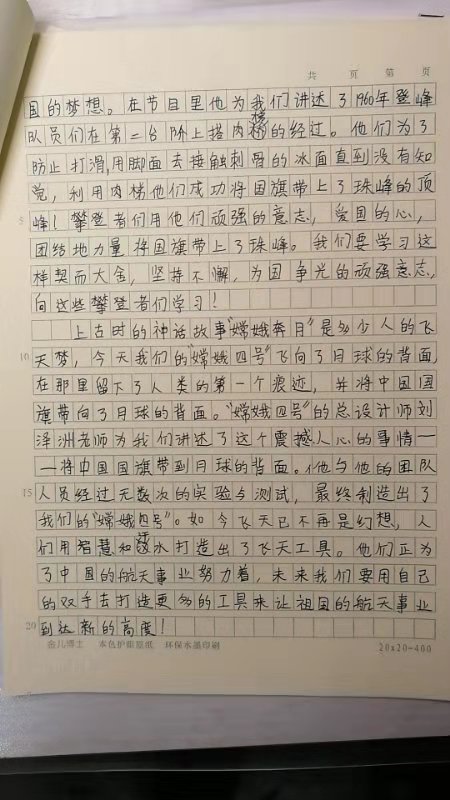 共 页 第 页
国的梦想。在节目里他为我们讲述了1960年登峰
队员们在第二台阶上搭肉梯的经过。他们为了
防止打滑,用脚面去接触刺骨的冰面直到没有知
觉,利用肉梯他们成功将国旗带上了珠峰的顶
5 峰!攀登者们用他们顽强的意志,爱国的心,
团结地力量将国旗带上了珠峰。我们要学习这
样契而大金,坚持不懈,为国争光的顽强意志,
向这些攀登者们学习!
上古时的神话故事"嫦娥奔月"是多少人的飞
10 天梦,今天我们的"嫦娥四号"飞向了月球的背面,
在那里留下了人类的第一个痕迹,并将中国国
旗带向了月球的背面。"嫦娥四号"的总设计师刘
泽洲老师为我们讲述了这个震撼人心的事情—
—将中国国旗带到月球的背面。他与他的团队
15 人员经过无数次的实验与测试,最终制造出了
我们的"嫦娥四号"。如今飞天已不再是幻想,人
们用智慧和汗水打造出了飞天工具。他们正为
了中国的航天事业努力着,未来我们要用自己
的双手去打造更多的工具来让祖国的航天事业
20 到达新的高度!
金儿博士 本色护眼原纸 环保水墨印刷 20x20=400